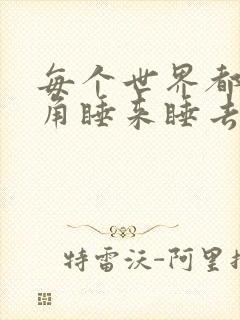 每个世界都
角睡来睡去
特雷沃-阿里扎